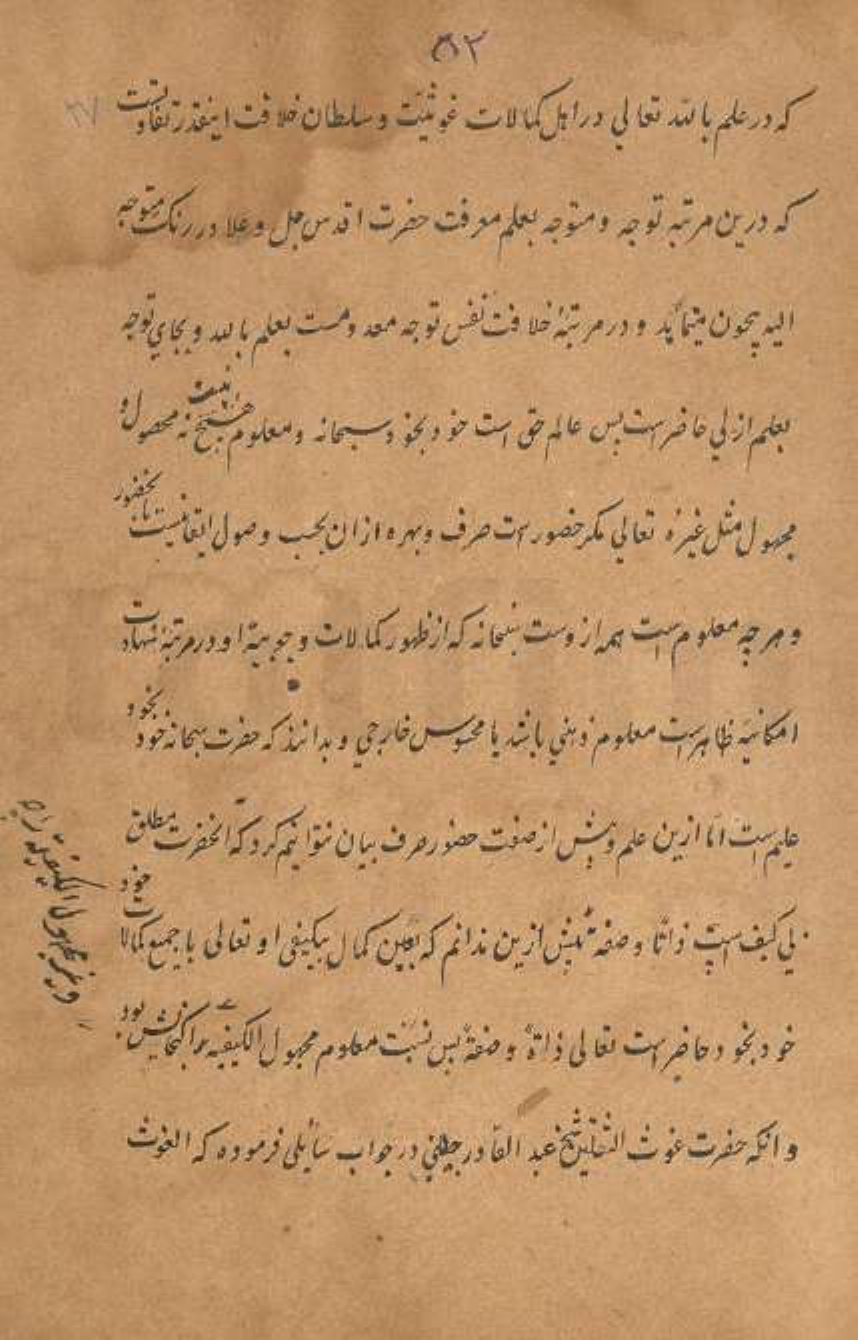 ۵۲
که در علم بالله تعالی در اهل کمالات غوثیت و سلطان خلافت اینقدر تفاوتست
که درین مرتبه توجه و متوجه بعلم معرفت حضرت اقدس جل و علا در رنک متوجه
الیه بیچون مینماید و در مرتبهٔ خلافت نفس توجه معدومست بعلم بالله و بجای توجه
بعلم ازلی حاضر است پس عالم حق است خود بخود سبحانه و معلوم هیچ نیست نه محصول و
مجهول مثل غیرهٔ تعالی مکر حضور است صرف و بهره ازان بحسب وصول ایقانیست نا بحضور
و هرچه معلوم است همه از وست سبحانه که از ظهور کمالات وجوبیة او در مرتبهٔ شهادت
امکانیه ظاهر است معلوم ذهنی باشد یا محسوس خارجی و بدانند که حضرت سبحانه خود بخود
علیم است اما ازین علم وبیش از صفت حضور صرف بیان نتوانیم کرد که آنحضرت مطلق
بی کیف است ذاتا و صفة بیش ازین ندانم که بعین کمال بیکیفی او تعالی با جمیع کمالات خود
خود بخود حاضر است تعالی ذاتة و صفة پس نسبت معلوم مجهول الکیفیه را کنجایش بود
و انکه حضرت غوث الثقلین شیخ عبد القادر جیلانی در جواب سائلی فرموده که الغوث